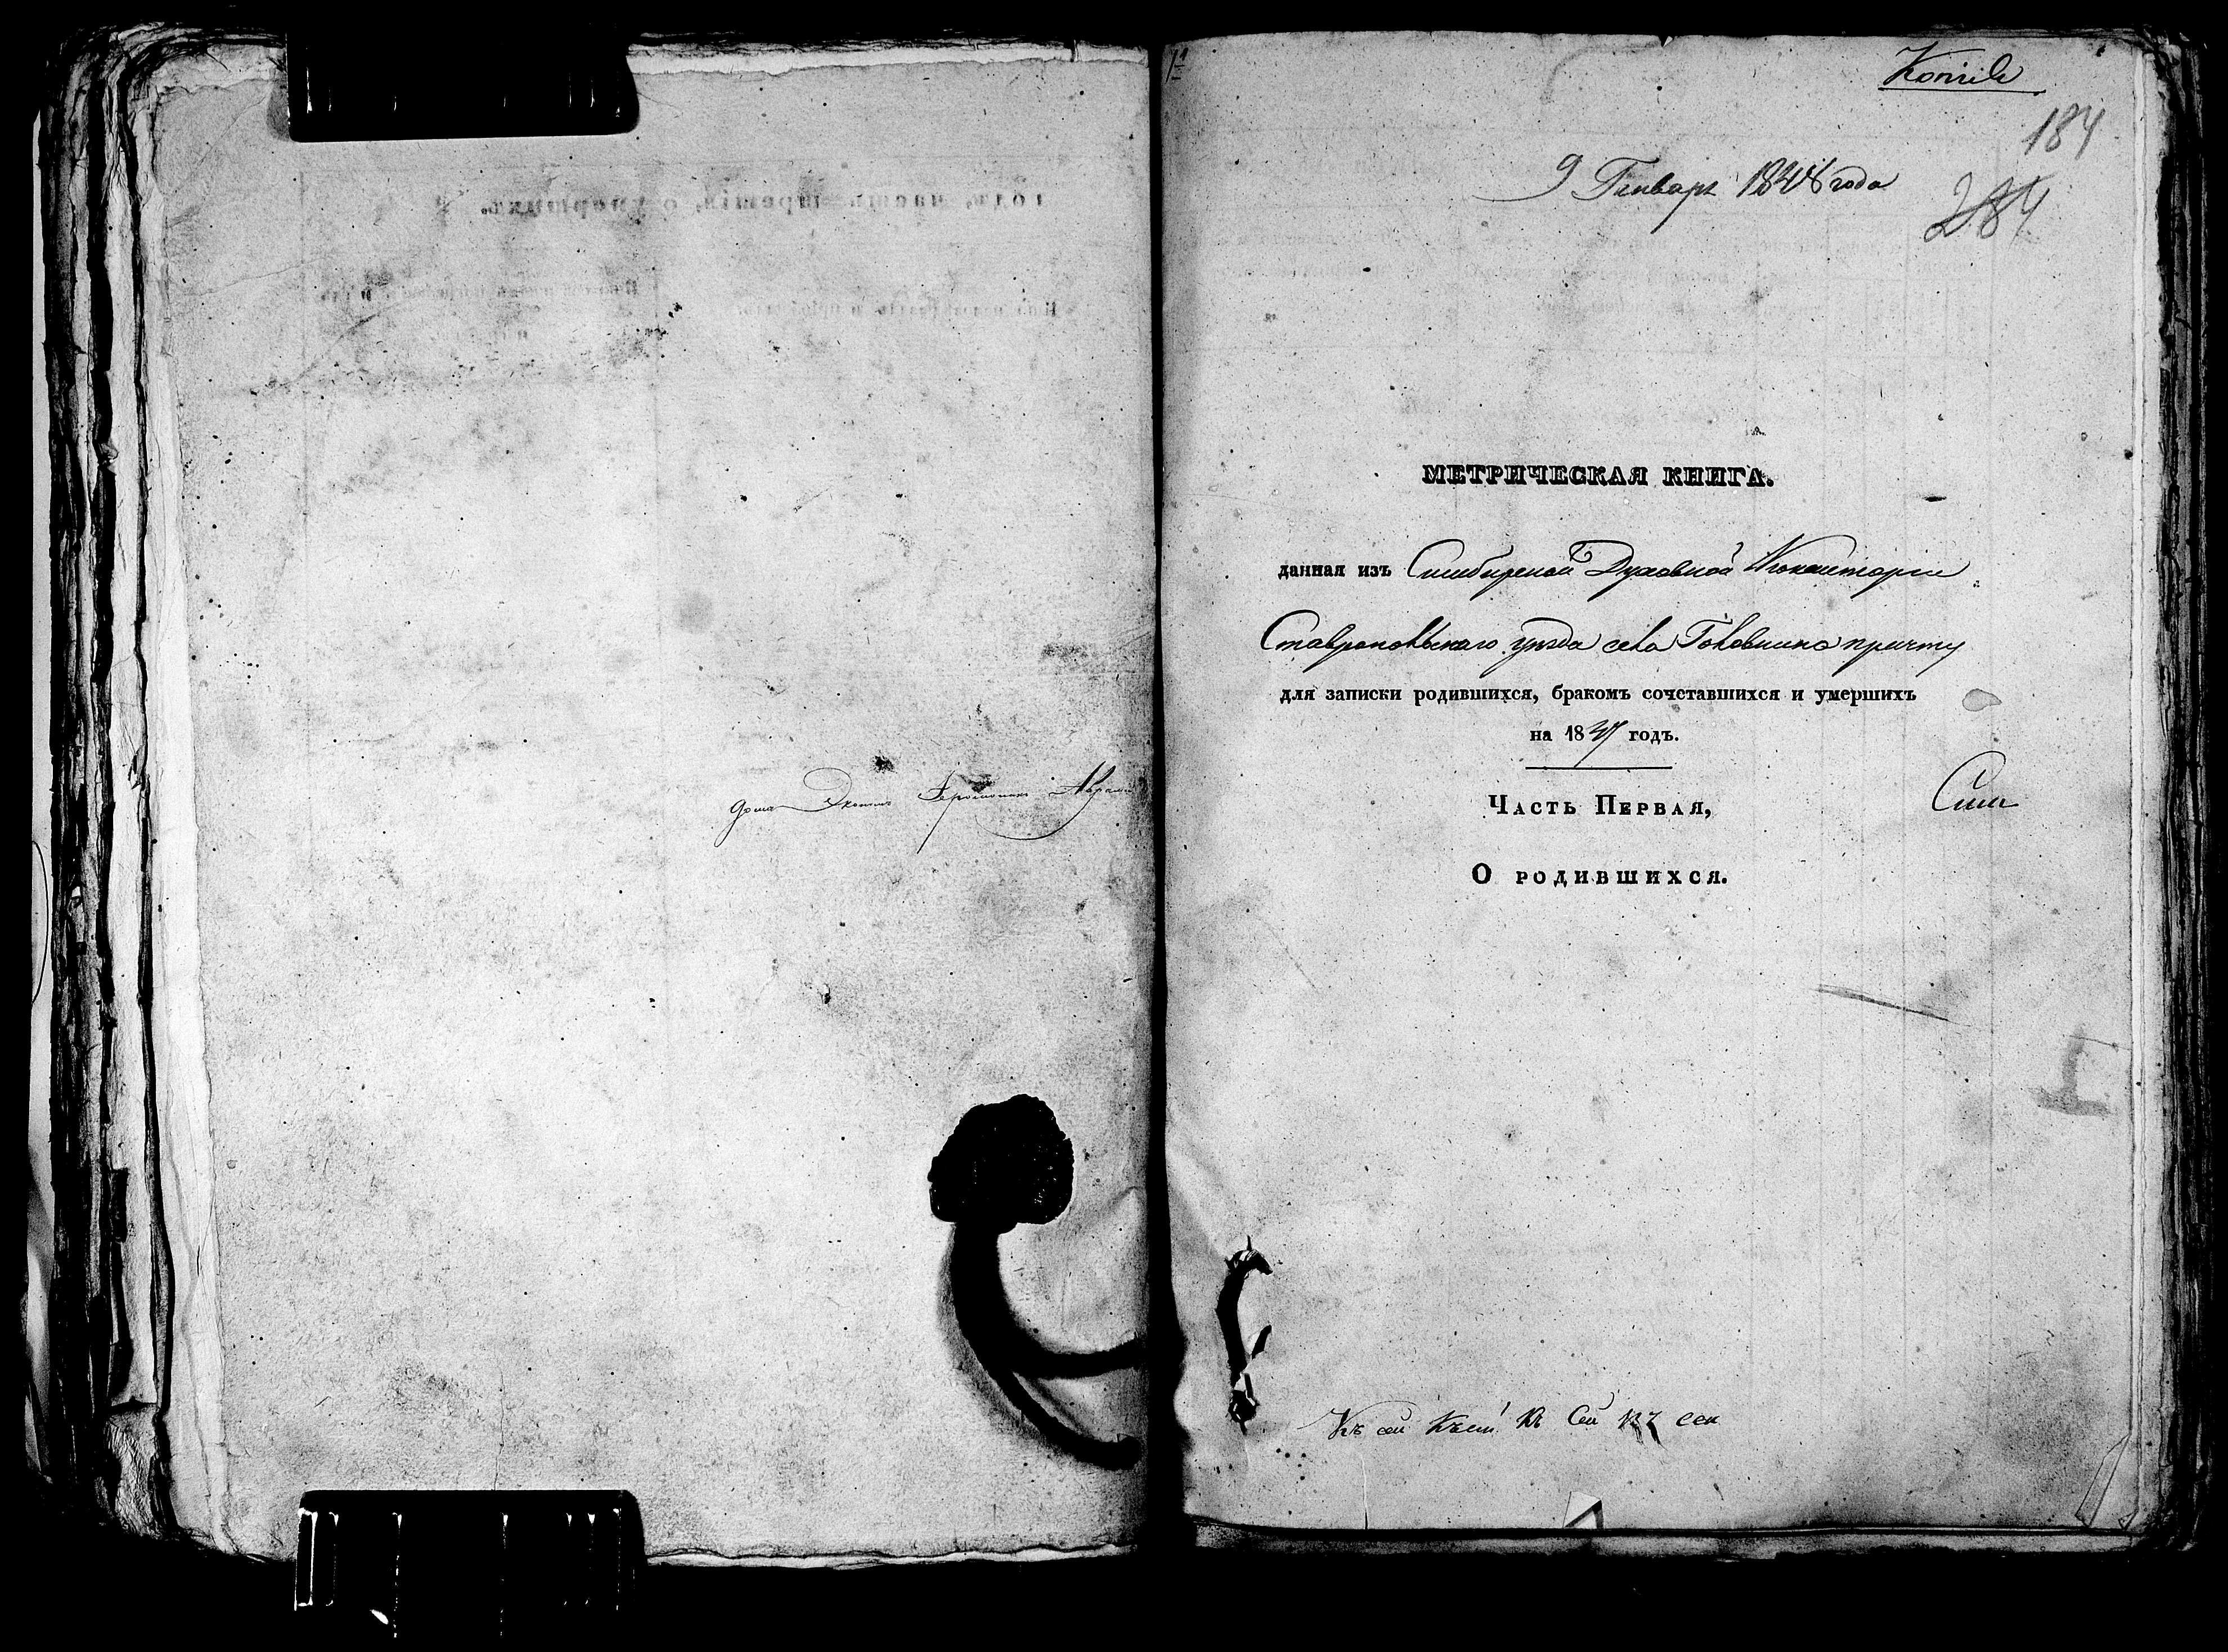 дома Эконом Іеромонах
Копія
184
9 Генваря 1848 года
284
МЕТРИЧЕСКАЯ КНИГА.
данная изъ Симбирской Духовной Консисторіи
Ставропольскаго уѣзда села Головкина причту
для записки родившихся, бракомъ сочетавшихся и умершихъ
на 1847 годъ.
Часть Первая,
Сим
О родившихся.
Къ сей